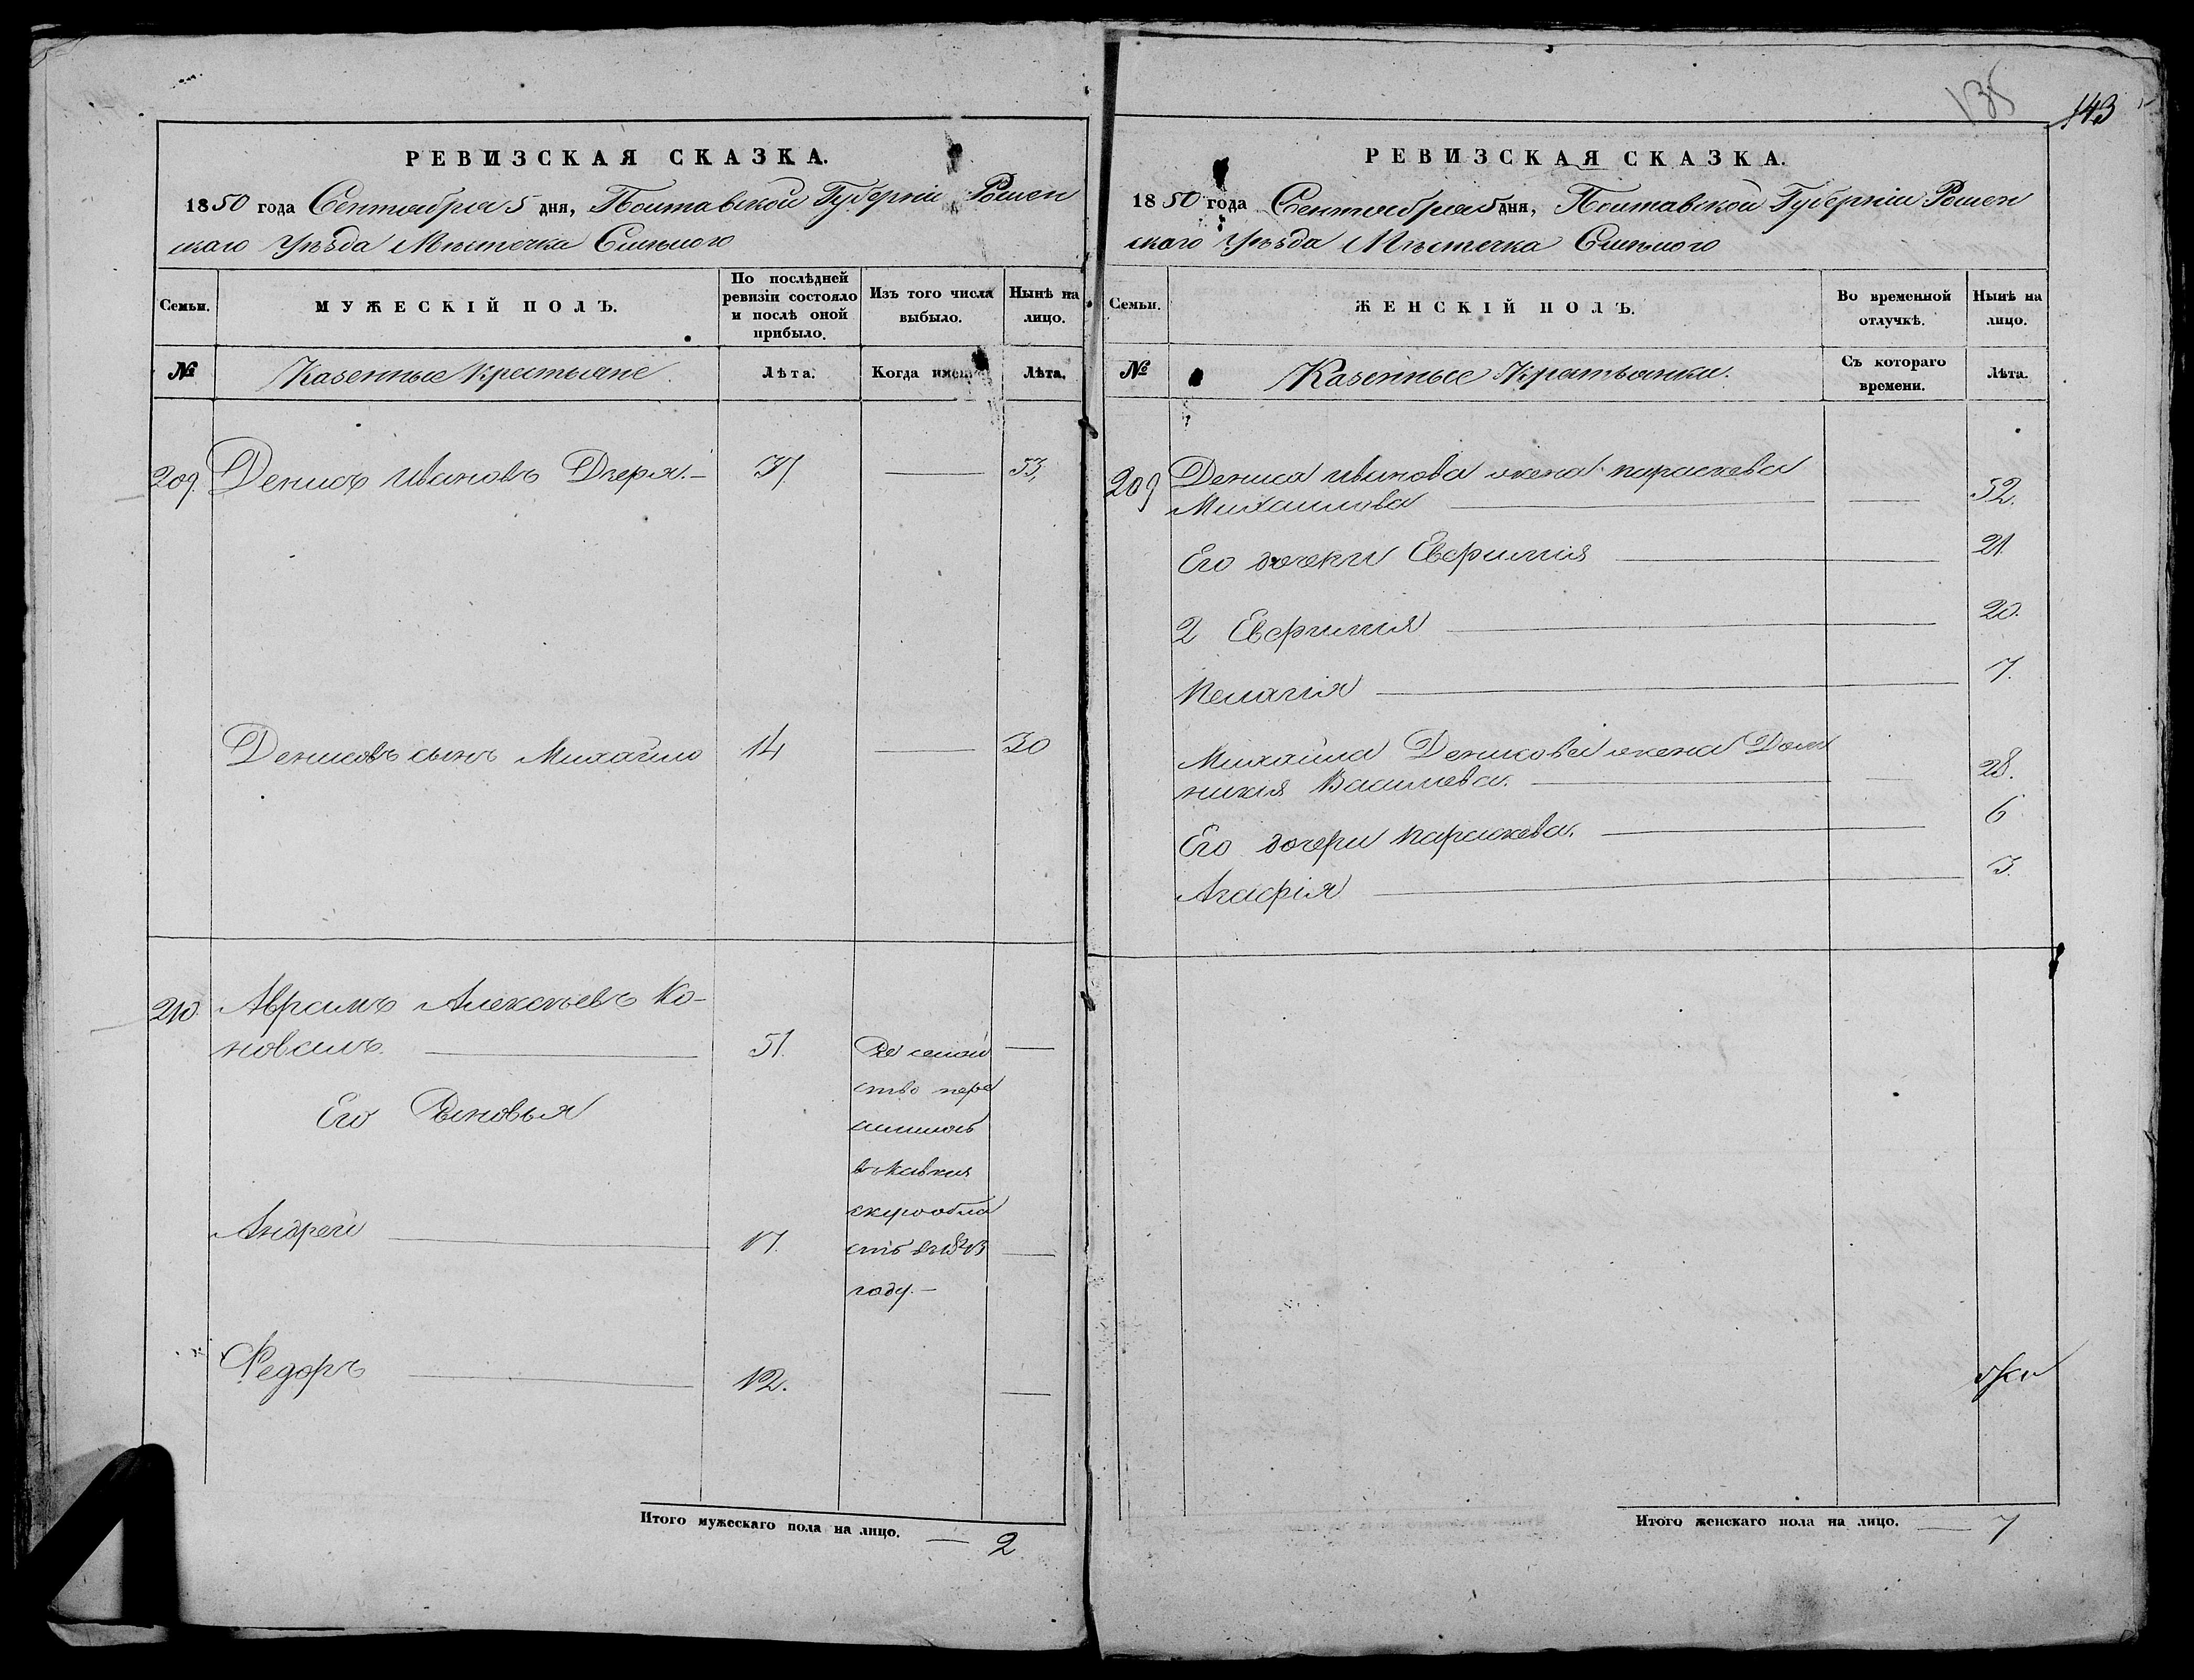 РЕВИЗСКАЯ СКАЗКА.
1850 года Сентября 5 дня, Полтавской Губерніи Ромен
скаго Уѣзда Мѣстечка Смѣлого
Семьи.
МУЖЕСКІЙ ПОЛЪ.
По послѣдней ревизіи состояло и послѣ оной прибыло.
Изъ того числа выбыло.
Нынѣ на лицо.
№
Казенные крестьяне.
Лѣта.
Когда именно
Лѣта.
209. Денисъ Ивановъ Дзеря. — 37 — 53.
Денисовъ сынъ Михайло 14 — 30
210. Аврамъ Алексѣевъ Ко-
новалъ. — 51. —
Сѣ семей
ство пере
селилось
въ Кавказ
скую обла
сть въ 1843
году. —
Его Сыновья
Андрей — 17. —
Федоръ — 12. —
Итого мужескаго пола на лицо. — 2
135
143
РЕВИЗСКАЯ СКАЗКА.
1850 года Сентября 5 дня, Полтавской Губерніи Ромен
скаго Уѣзда Мѣстечка Смѣлого
Семьи.
ЖЕНСКІЙ ПОЛЪ.
Во временной отлучкѣ.
Нынѣ на лицо.
№
Казенные Крестьянки.
Съ котораго времени.
Лѣта.
209 Дениса Иванова жена Параскева
Михайлова — — 52.
Его дочери Евфимія — 21.
2 Евфимія — 20.
Пелагія — 7.
Михайла Денисова жена Дом
никія Василева. — 28.
Его дочери Параскева. — 6
Агафія — 3.
Итого женскаго пола на лицо. — 7